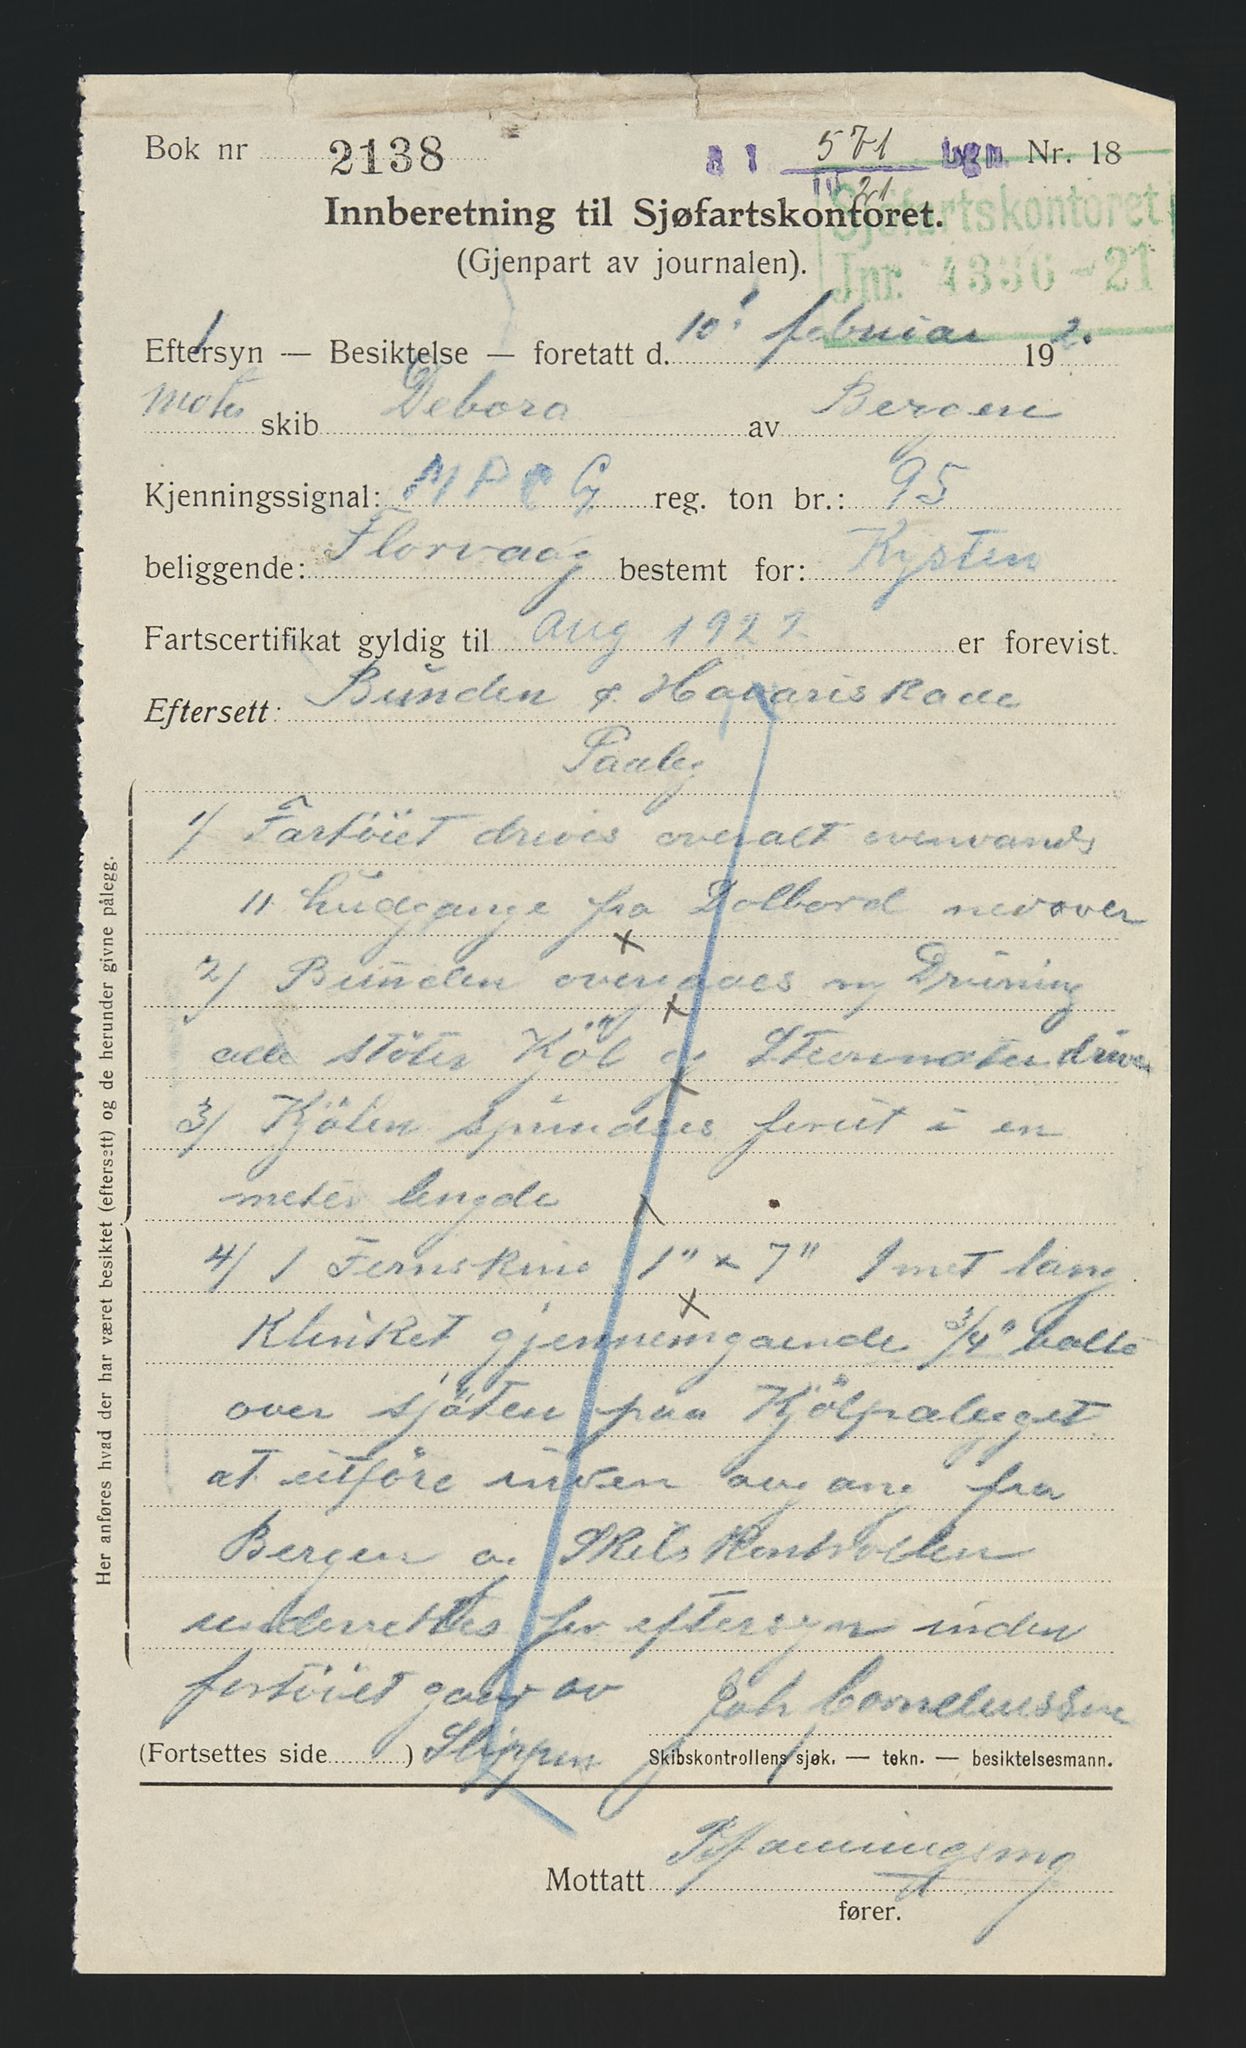 Bok nr 2138
A I 571 bgn Nr. 18
III 21
Innberetning til Sjøfartskontoret.
Sjøfartskontoret
Jnr. 4336-21
(Gjenpart av journalen).
Eftersyn — Besiktelse — foretatt d. 10' februiar 192.
Motor skib Debora av Bergen
Kjenningssignal: M P C G reg. ton br.: 95
beliggende: Florvaag bestemt for: Kysten
Fartscertifikat gyldig til Aug 1922 er forevist.
Eftersett: Bunden & Havariskade
Paaleg
1/ Fartöiet drives overalt ovenvands
11 hudgange fra Dolbord nedover
2/ Bunden overgaaes ny Drivning
alle stöter Köl og drives
3/ Kjölen spundses forut i en
meter lengde
4/ 1 Jernskine 1" x 7" 1 met lang
Klinket gjennemgaaende 3/4" bolte
over sjöten paa Kjöl palegget
at utföre inden avgang fra
Bergen og Skibskontrollen
underrettes for eftersyn inden
fortöiet gaar av
Slippen
Joh Corneliussen
(Fortsettes side ) Skibskontrollens sjøk. — tekn. — besiktelsesmann.
Mottatt
fører.
Her anføres hvad der har været besiktet (eftersett) og de herunder givne pålegg.